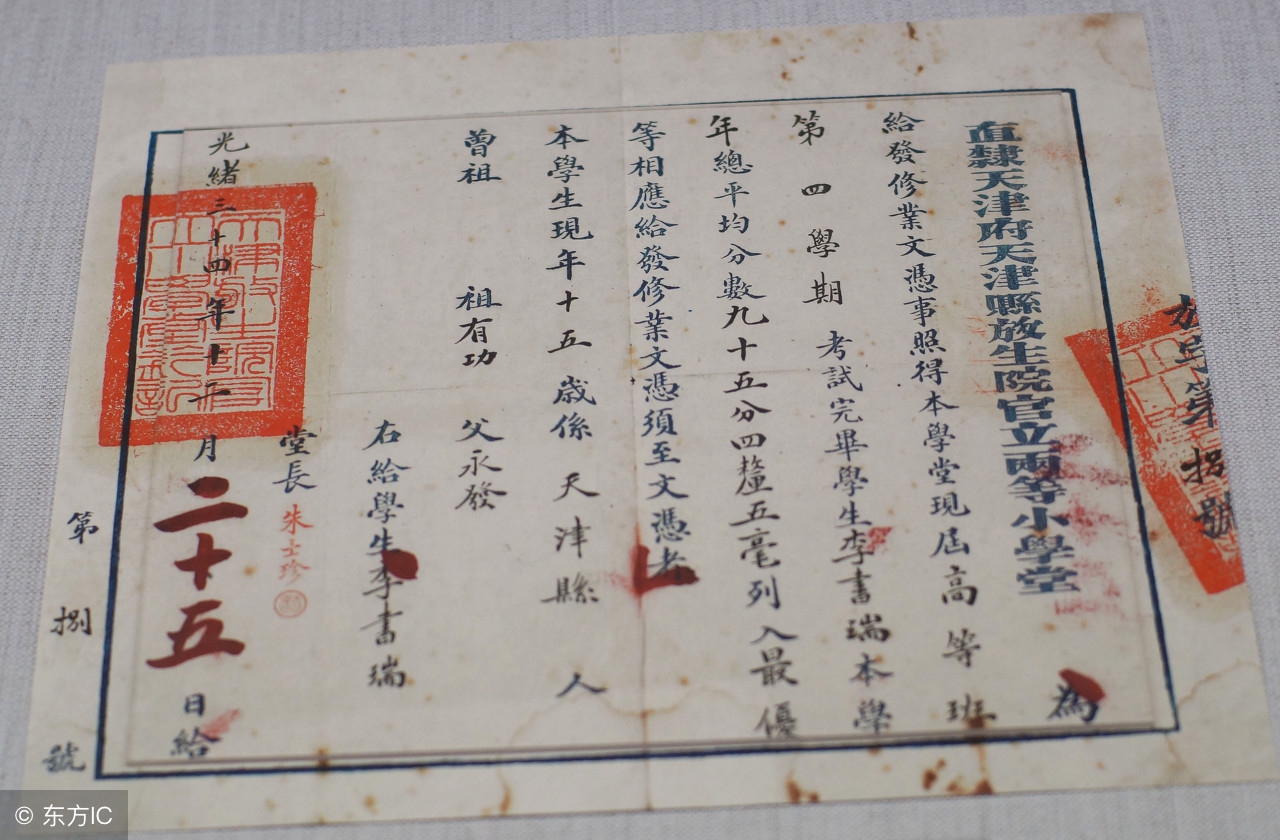 放字第捌號
直隸天津府天津縣放生院官立兩等小學堂 為
給發修業文憑事照得本學堂現屆高等班
第四學期考試完畢學生李書瑞本學
年總平均分數九十五分四釐五毫列入最優
等相應給發修業文憑須至文憑者
本學生現年十五歲係天津縣人
曾祖 祖有功 父永發
右給學生李書瑞
堂長朱士珍
光緒三十四年十二月二十五日給
第捌號
© 东方IC